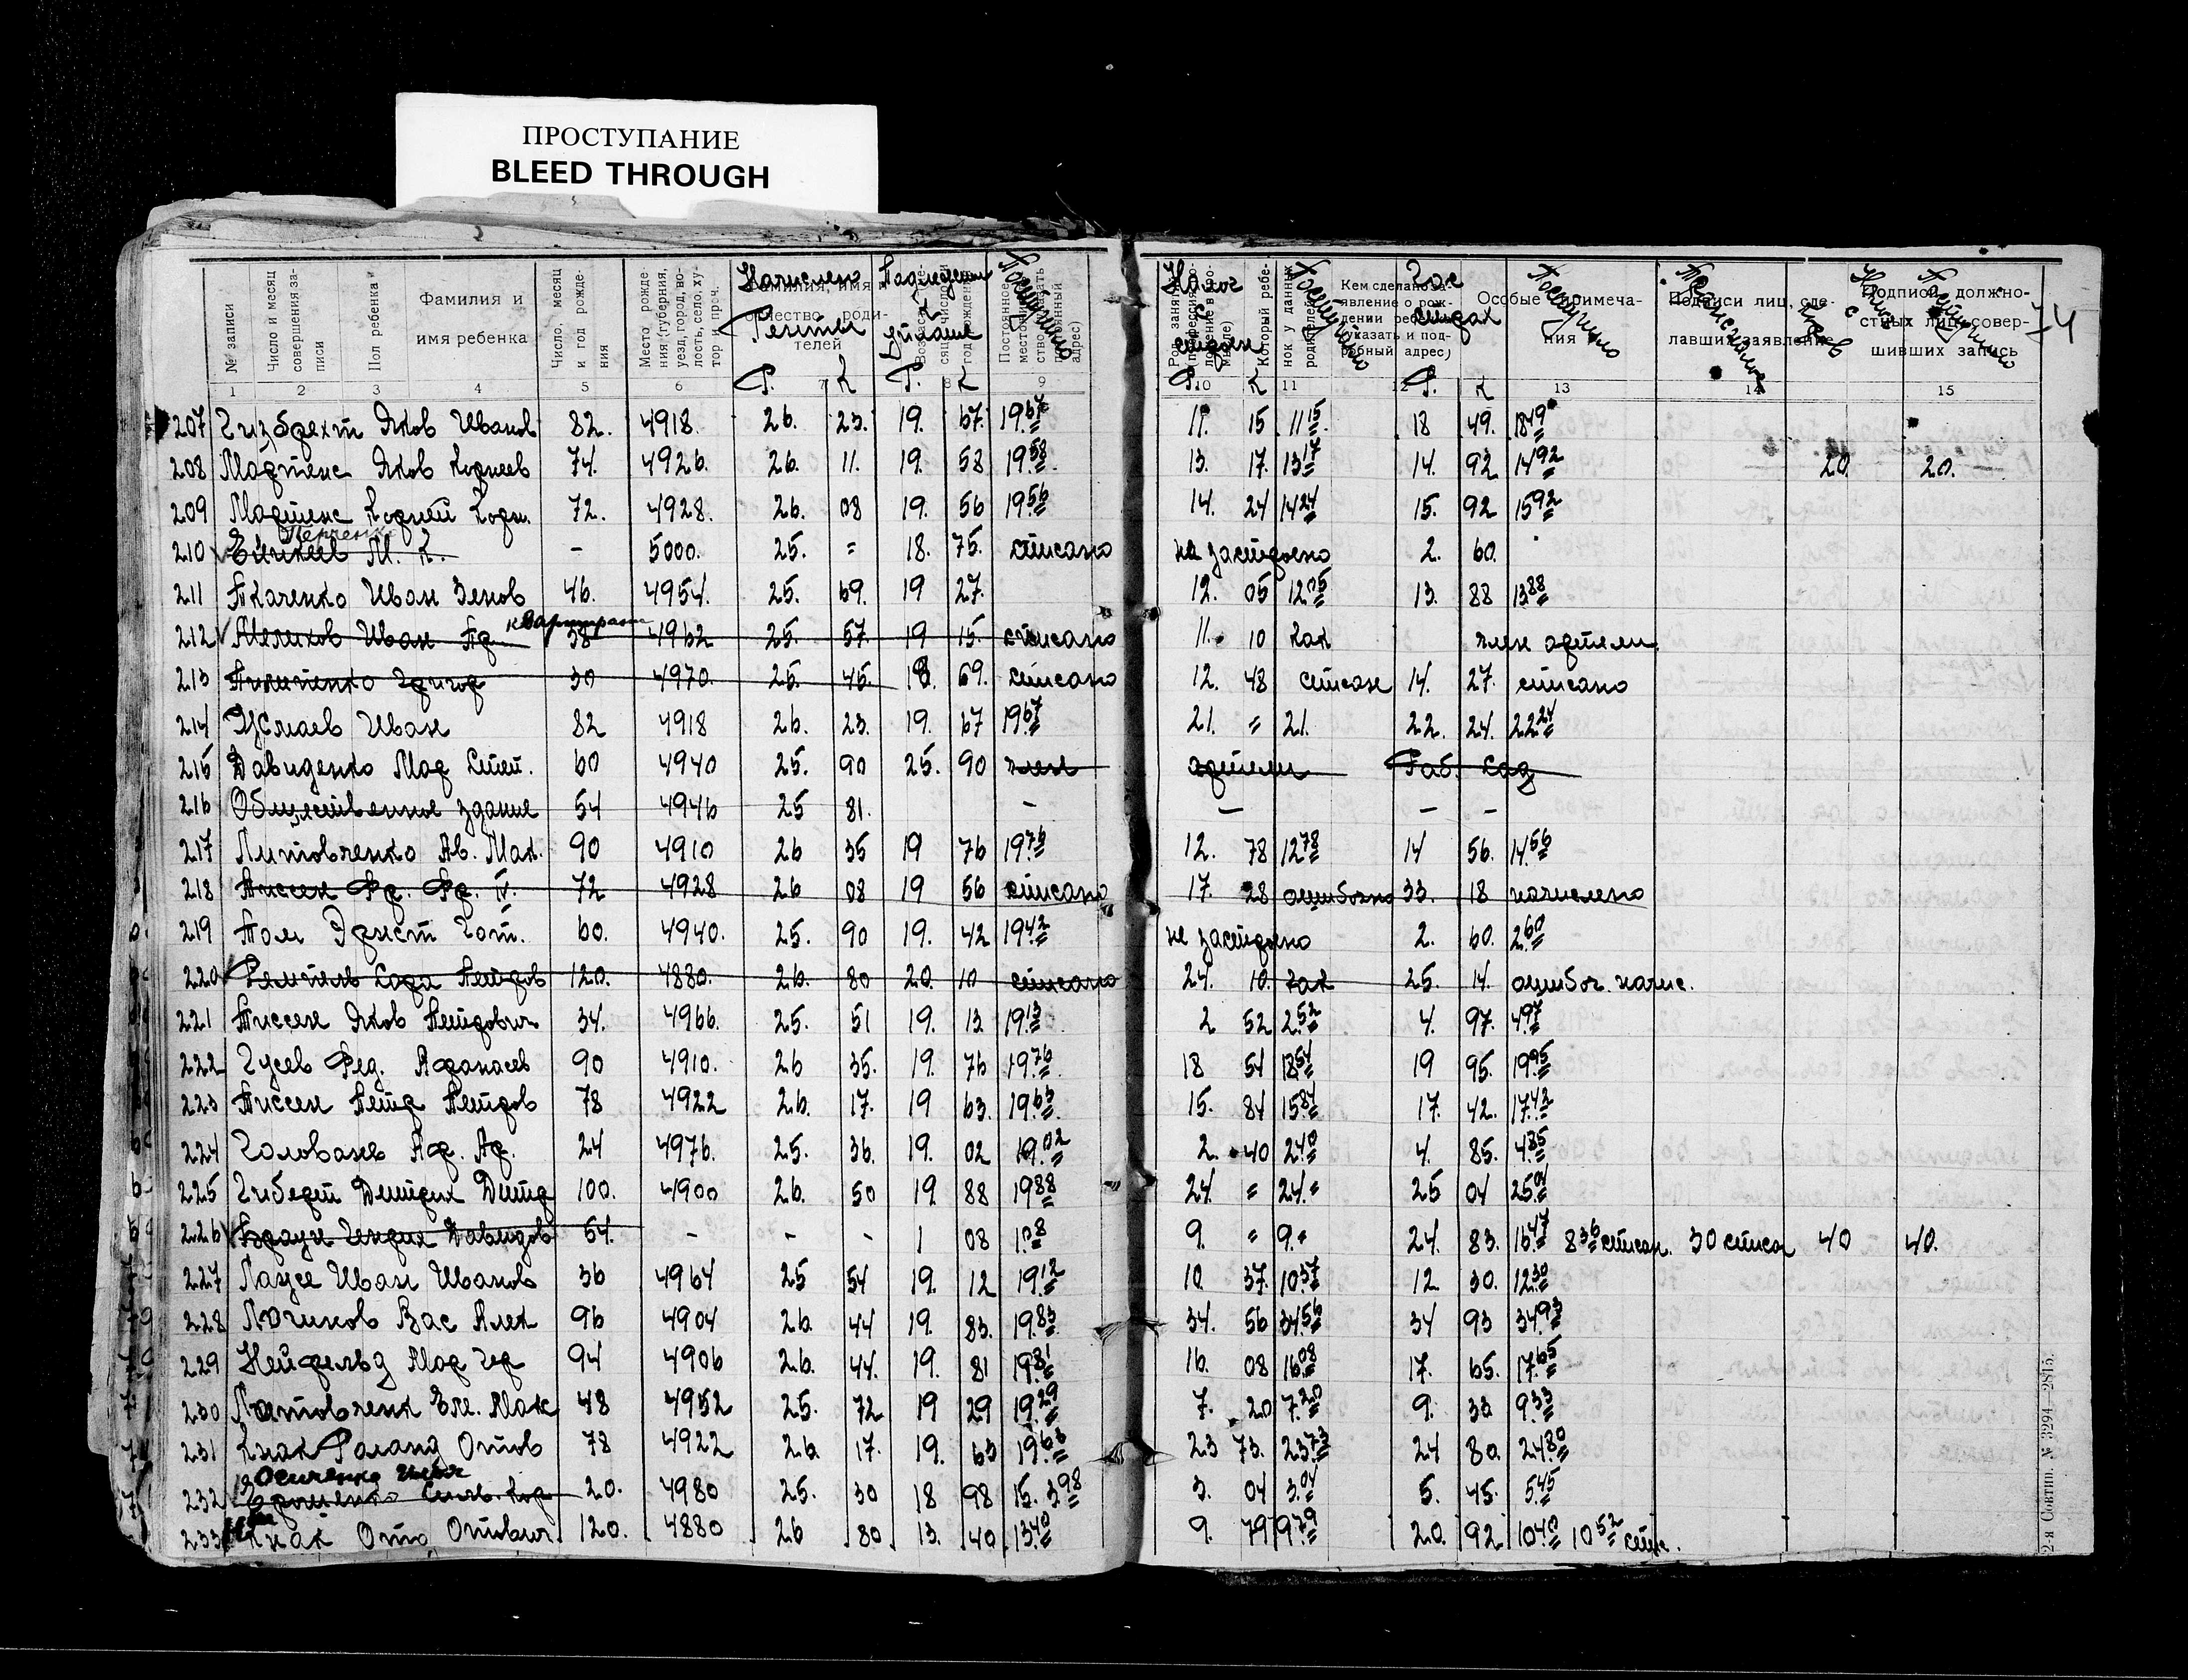 ПРОСТУПАНИЕ
BLEED THROUGH
№ записи
Число и месяц совершения записи
Пол ребенка
Фамилия и имя ребенка
Число, месяц и год рождения
Место рождения (губерния, уезд, город, волость, село, хутор и проч.
Начислен Ренты
Подлежит к уплате
Поступило
Налог с строен
Поступило
Гос страх
Поступило
Особые примечания
Подписи лиц, сделавших заявление
Подписи должностных лиц, совершивших запись
74
Р. К Р. К Р. К Р. К
1 2 3 4 5 6 7 8 9 10 11 12 13 14 15
207 Гизбрехт Яков Иванов 82. 4918. 26. 23. 19. 67. 19 67 11. 15 11 15 18 49. 18 49
208 Мартенс Яков Корнеев 74. 4926. 26. 11. 19. 58 19 58 13. 17. 13 17 14. 92 14 92 20. 20.
209 Мартенс Корней Корн. 72. 4928. 26. 08 19. 56 19 56 14. 24 14 24 15. 92 15 92
210 М. К. - 5000. 25. = 18. 75. списано не застроено 2. 60.
211 Ткаченко Иван Зенов 46. 4954. 25. 69. 19 27. 12. 05 12 05 13. 88 13 88
212 Мелихов Иван 38 4962 25. 57. 19 15. списано 11. 10 как член артели
213 Пилипенко Григор 30 4970. 25. 45. 18. 69. списано 12. 48 списан 14. 27. списано
214 Усмаев Иван 82 4918 26. 23. 19. 67 19 67 21. = 21. 22. 24. 22 24
215 Давиденко Мар Степ. 60 4940 25. 90 25. 90 член артели Раб. Сад
216 Общественное здание 54 4946 25 81. - - - -
217 Литовченко Ав. Мак. 90 4910 26 35 19 76 19 76 12. 78 12 78 14 56. 14 56
218 Тиссен Фр. Фр. 72 4928 26 08 19 56 списано 17. 28 ошибочно 33. 18 начислено
219 Том Эрнст Гот. 60. 4940. 25. 90 19. 42 19 42 не застроено 2. 60. 2 60
220 Ремпель Сара Петров 120. 4880. 26. 80 20. 10 списано 24. 10. как 25. 14. ошибоч. начис.
221 Тиссен Яков Петрович 34. 4966. 25. 51 19. 13 19 13 2 52 2 52 4. 97. 4 97
222 Гусев Фед. Афанасев 90 4910. 26 35. 19. 76 19 76 18 54 18 54 19 95. 19 95
223 Тиссен Петр Петров 78 4922 26. 17. 19 63. 19 63 15. 84 15 84 17. 42. 17 42
224 Голованев Аф. Аф. 24 4976. 25. 36. 19. 02 19 02 2. 40 2 40 4. 85. 4 85
225 Гиберт Дитрих Дитр 100. 4900 26. 50 19 88 19 88 24. = 24. = 25 04 25 04
226 Браун Генрих Давидов 54. - - - 1 08 1 08 9. = 9. = 24. 83. 16 47 8 36 списан. 30 списан 40 40.
227 Лаузе Иван Иванов 36 4964 25 54 19. 12 19 12 10 37. 10 37 12 30. 12 30
228 Логинов Вас Алек 96 4904 26. 44 19. 83. 19 83 34. 56 34 56 34 93 34 93
229 Нейфельд Мар Гер 94 4906 26. 44. 19. 81 19 81 16. 08 16 08 17. 65. 17 65
230 Литовченк Эле. Мак 48 4952 25. 72 19 29 19 29 7. 20 7 20 9. 33 9 33
231 Кнак Роланд Отов 78 4922 26. 17. 19. 63 19 63 23 73. 23 73 24 80. 24 80
Осипенко Илья
232 20. 4980 25. 30 18 98 15. 3 98 3. 04 3 04 5. 45. 5 45
233 Кнак Отто Отович 120. 4880 26 80 13. 40 13 40 9. 79 9 79 20. 92 10 40 10 52 спис.
2-я Совтип. № 3294—2815.